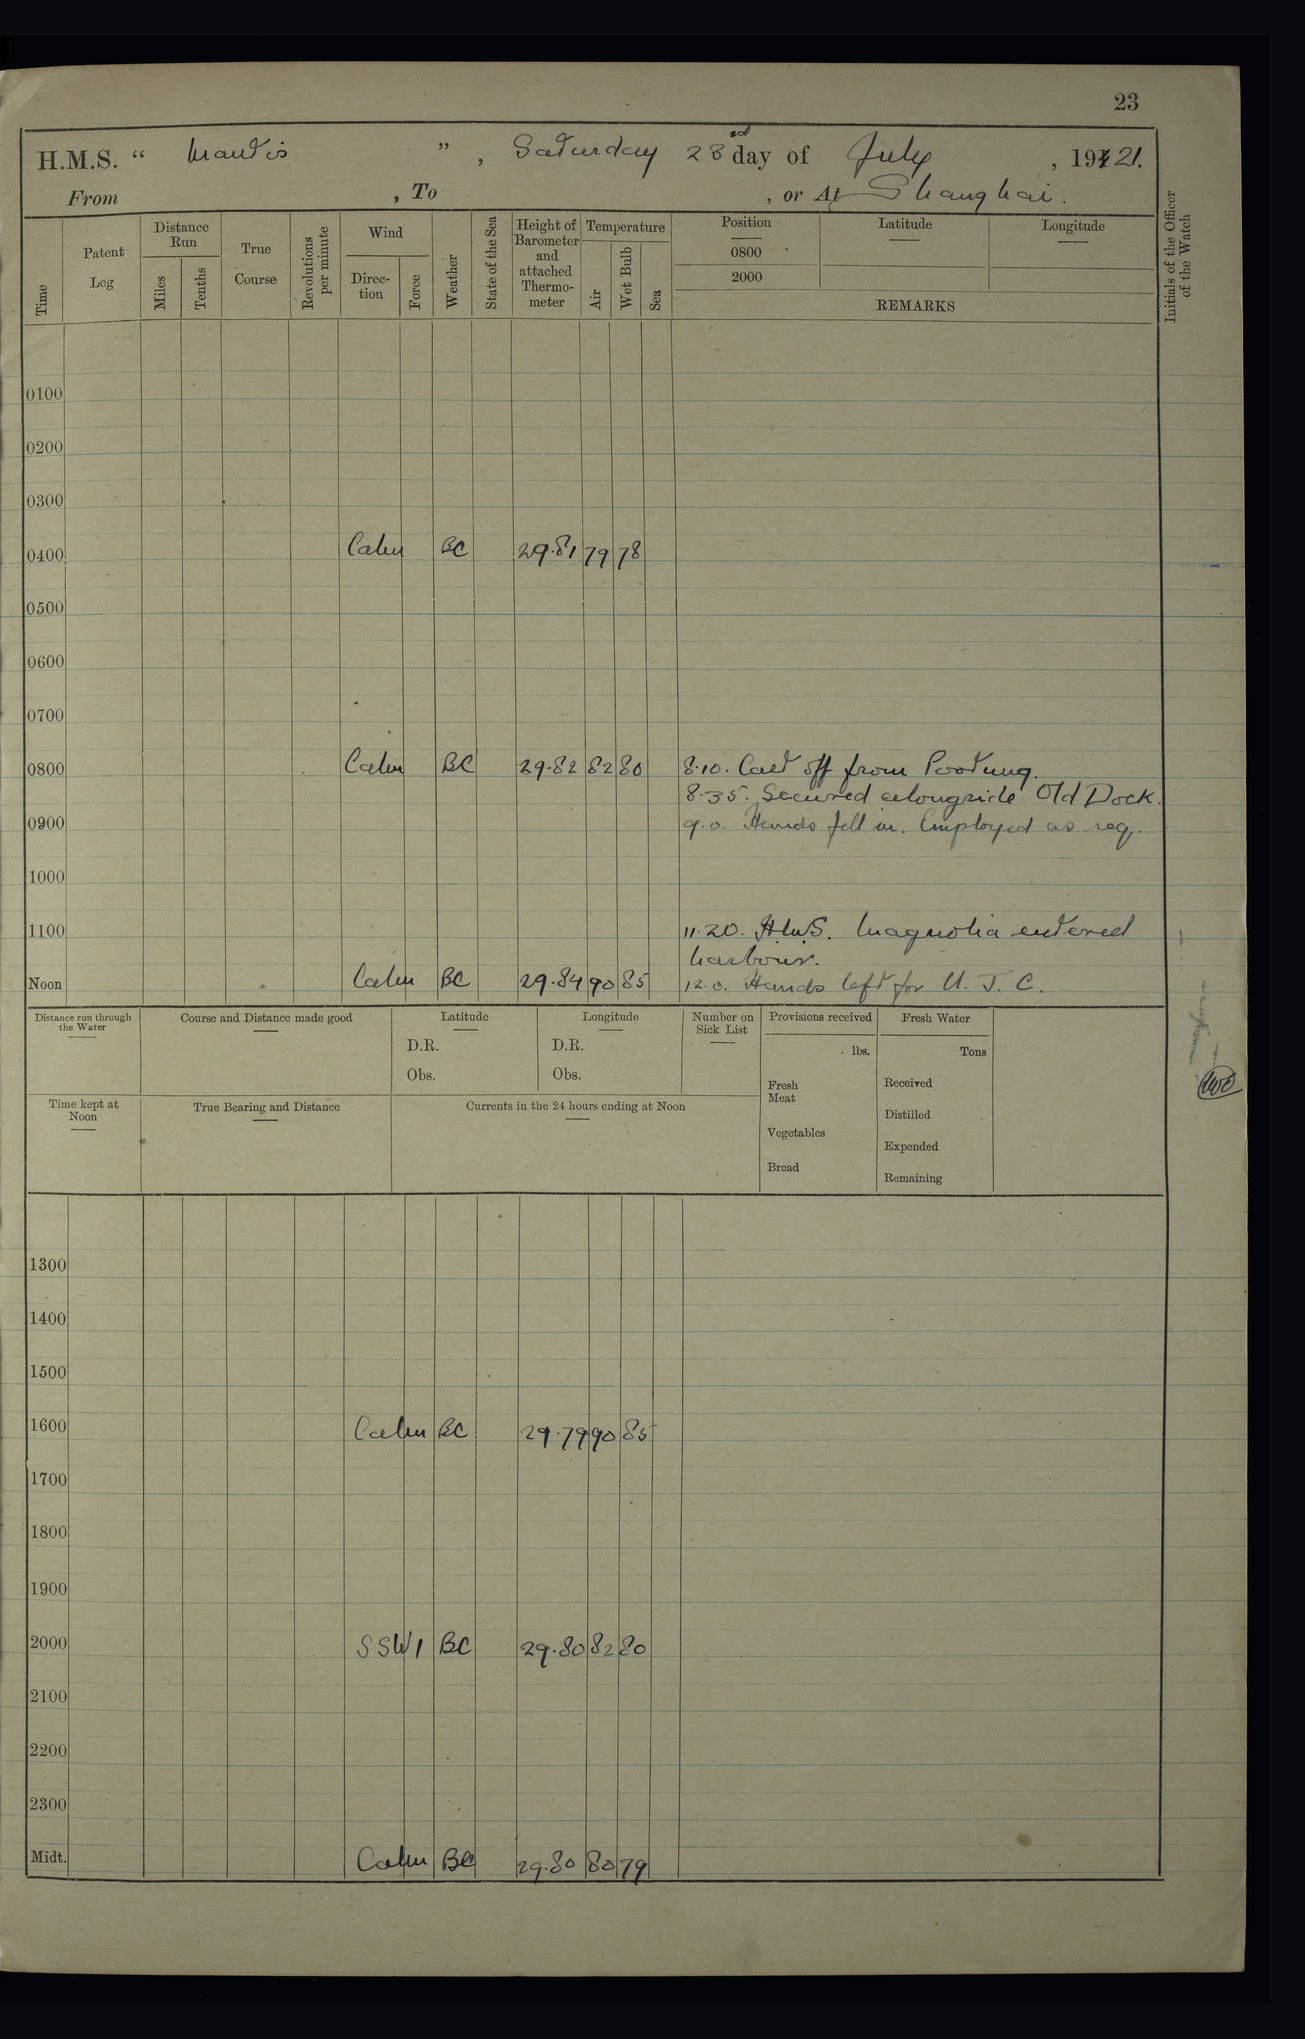 23
H.M.S. “ Mantis ” , Saturday 23rd day of July , 1921.
From , To , or At Shanghai.
Time
Patent Log
Distance Run
Miles
Tenths
True Course
Revolutions per minute
Wind
Direc-tion
Force
Weather
State of the Sea
Height of Barometer and attached Thermo-meter
Temperature
Air
Wet Bulb
Sea
Position Latitude Longitude
0800
2000
REMARKS
Initials of the Officer of the Watch
0100
0200
0300
0400 Calm BC 29.81 79 78
0500
0600
0700
0800 Calm BC 29.82 82 80 8.10. Cast off from Pootung.
8.35. Secured alongside Old Dock.
0900 9.0. Hands fell in. Employed as req.
1000
1100 11.20. H.M.S. Magnolia entered
harbour.
Noon Calm BC 29.84 90 85 12.0. Hands left for U. J. C.
Distance run through the Water
Course and Distance made good
Latitude
D.R.
Obs.
Longitude
D.R.
Obs.
Number on Sick List
Provisions received
lbs.
Fresh Meat
Vegetables
Bread
Fresh Water
Tons
Received
Distilled
Expended
Remaining
Time kept at Noon
True Bearing and Distance
Currents in the 24 hours ending at Noon
1300
1400
1500
1600 Calm BC 29.79 90 85
1700
1800
1900
2000 SSW 1 BC 29.80 82 80
2100
2200
2300
Midt. Calm BC 29.80 80 79